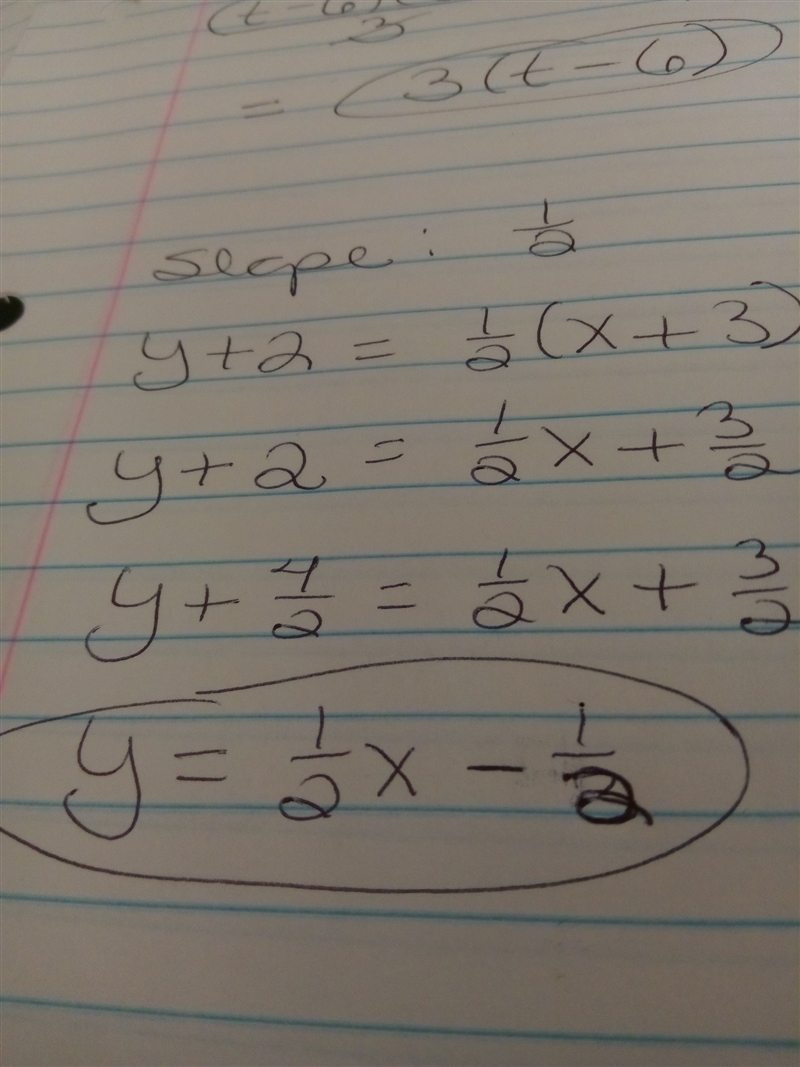 (t-6)
3
= 3(t-6)
slope: 1/2
y+2 = 1/2(x+3)
y+2 = 1/2x+3/2
y+4/2 = 1/2x+3/2
y = 1/2x - 1/2